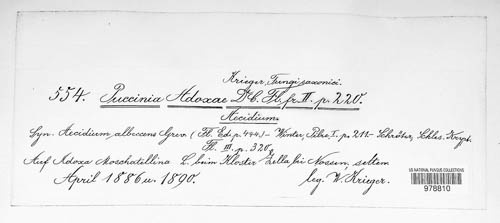 Krieger, Fungi saxonici.
554. Puccinia Adoxae D.C. Fl. fr. II. p. 220.
Aecidium.
Syn. Aecidium albescens Grev. (Fl. Ed. p. 444.) - Winter, Pilze, I. p. 211 - Schröter, Schles. Krypt.
Fl. III. p. 320.
Auf Adoxa Moschatellina L. beim Kloster Zella bei Nossen, selten
April 1886 u. 1890. leg. W. Krieger.
US NATIONAL FUNGUS COLLECTIONS
978810